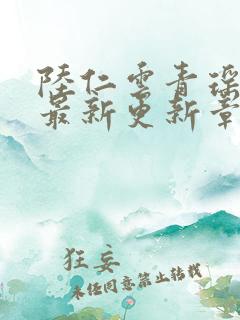 陸仁雲青瑤
最新更新章
狂妄
未经同意禁止转载